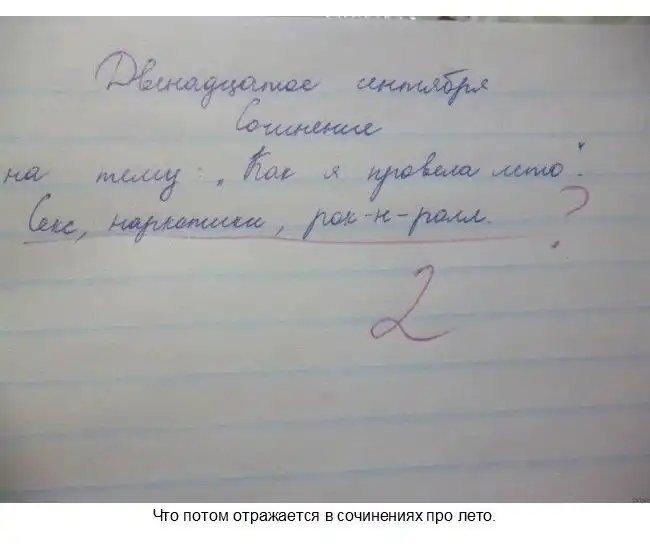 Двенадцатое сентября
Сочинение
на тему: „Как я провела лето".
Секс, наркотики, рок-н-ролл. ?
2
Что потом отражается в сочинениях про лето.